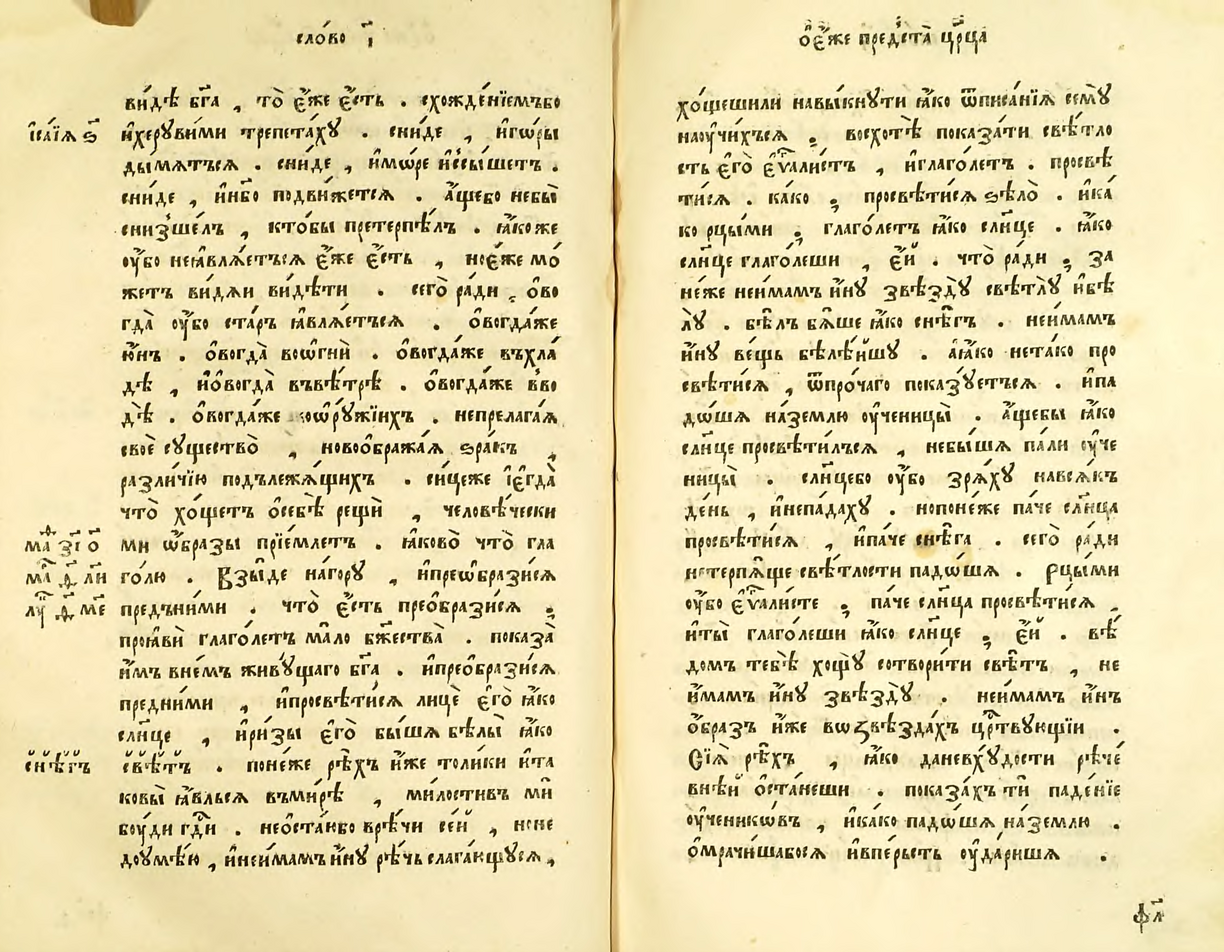 сло́во і҃
ви́дѣ бг҃а , то̀ є҆́же є҆́сть . схожде́нїемъбо
їса́їѧ ѕ҃
и҆херꙋви́ми трепета́хꙋ . сни́де , и҆го́ры
дымѧ́тъсѧ . сни́де , и҆мо́ре и҆ссы́шетъ .
сни́де , и҆нб҃о подви́жетсѧ . а҆́щебо небы̀
снизше́лъ , кто́бы претерпѣ́лъ . ꙗ҆́коже
оу҆́бо неꙗ҆влѧ́етъсѧ є҆́же є҆́сть , ноє҆́же мо́
жетъ ви́дѧи ви́дѣти . сего̀ ра́ди , ѻ҆во
гда̀ оу҆́бо ста́ръ ꙗ҆влѧ́етъсѧ . ѻ҆вогда́же
ю҆́нъ . ѻ҆вогда̀ воѡ҆гни̑ . ѻ҆вогда́же въхла́
дѣ , и҆ѻ҆вогда̀ въвѣ́трѣ . ѻ҆вогда́же вво
дѣ̀ . ѻ҆вогда́же воѡ҆рꙋ́жїихъ . непрелага́ѧ
своѐ сꙋщество̀ , новоѡбража́ѧ ѕра́къ ,
разли́чїю подълежѧ́щихъ . си́цеже і҆є҆гда̀
что̀ хо́щетъ ѻ҆себѣ̀ рещи̑ , человѣ́чески
ма҃ ѕ҃і ѻ҃
ми ѡ҆́бразы прїе́млетъ . ꙗ҆ково̀ что̀ гла
ма҃ ди҃ ли
го́лю . Взы́де нагорꙋ , и҆преѡ҆брази́сѧ
лꙋ҃ д҃ ме
предъни́ми . что̀ є҆́сть преѡ҆брази́сѧ ,
проꙗ҆ви̑ глаго́летъ ма́ло бж҃ества̀ . показа̀
и҆́мъ вне́мъ живꙋ́щаго бг҃а . и҆преѡ҆брази́сѧ
предни́ми , и҆просвѣти́сѧ лицѐ є҆го̀ ꙗ҆́ко
сл҃нце , и҆ри́зы є҆го̀ бы́шѧ бѣ́лы ꙗ҆́ко
снѣ́гъ
свѣ́тъ . поне́же рѣ́хъ и҆́же толи́ки и҆та
ковы̀ ꙗ҆́влься въми́рѣ , ми́лостивъ ми̑
бо́уди гд҃и . неѻ҆ста́нбо врѣ́чи се́й , ноне
доумѣ́ю , и҆неи́мамъ и҆́нꙋ рѣ́чь слага́ющꙋсѧ ,
ѻ҆є҆́же предста̀ цр҃ца
хо́щешили навы́кнꙋти ꙗ҆́ко ѿписа́нїѧ семꙋ̀
наоучи́хъсѧ , восхотѣ̀ показа́ти свѣ́тло
сть є҆го̀ є҆ѵⷢ҇али́стъ , и҆глаго́летъ . просвѣ
ти́сѧ . ка́ко ; просвѣти́сѧ ѕѣло̀ . и҆ка́
ко рцы́ми ; глаго́летъ ꙗ҆́ко сл҃нце . ꙗ҆́ко
сл҃нце глаго́леши , є҆́й . что̀ ра́ди ; за
не́же неи́мамъ и҆́нꙋ звѣздꙋ̀ свѣтлꙋ̀ и҆бѣ
лꙋ . бѣ́лъ бѧ́ше ꙗ҆́ко снѣ́гъ . неи́мамъ
и҆́нꙋ ве́щь бѣлѣ́йшꙋ . а҆ꙗ҆́ко нета́ко про
свѣти́сѧ , ѿпро́чаго пока́зꙋетъсѧ . и҆па
до́шѧ на́землю оу҆ченицы̀ . а҆́щебы ꙗ҆́ко
сл҃нце просвѣти́лъсѧ , небы́шѧ па́ли оу҆че
ницы̀ . сл҃нцебо оу҆́бо зрѧ́хꙋ навсѧ́къ
де́нь , и҆непа́дахꙋ . нопоне́же па́че сл҃нца
просвѣти́сѧ , и҆па́че снѣ́га . сего̀ ра́ди
нетерпѧ́ще свѣ́тлости падо́шѧ . рцы́ми
оу҆́бо є҆ѵⷢ҇али́сте ; па́че сл҃нца просвѣти́сѧ ,
и҆ты̀ глаго́леши ꙗ҆́ко сл҃нце ; є҆́й . вѣ́
домъ тебѣ̀ хощꙋ̀ сотвори́ти свѣ́тъ , не
и҆́мамъ и҆́нꙋ звѣздꙋ̀ . неи́мамъ и҆́нъ
ѻ҆́бразъ и҆́же воѕвѣзда́хъ цр҃твꙋющїи .
Сїѧ̑ рѣ́хъ , ꙗ҆́ко даневхꙋ́дости рѣ́че
внѣ́й ѻ҆ста́неши . показа́хъ ти̑ паде́нїе
оу҆ченикѡ́въ , и҆ка́ко падо́шѧ на́землю .
ѻ҆мрачи́шабосѧ и҆впе́рьсть оу҆да́ришѧ .
фл҃